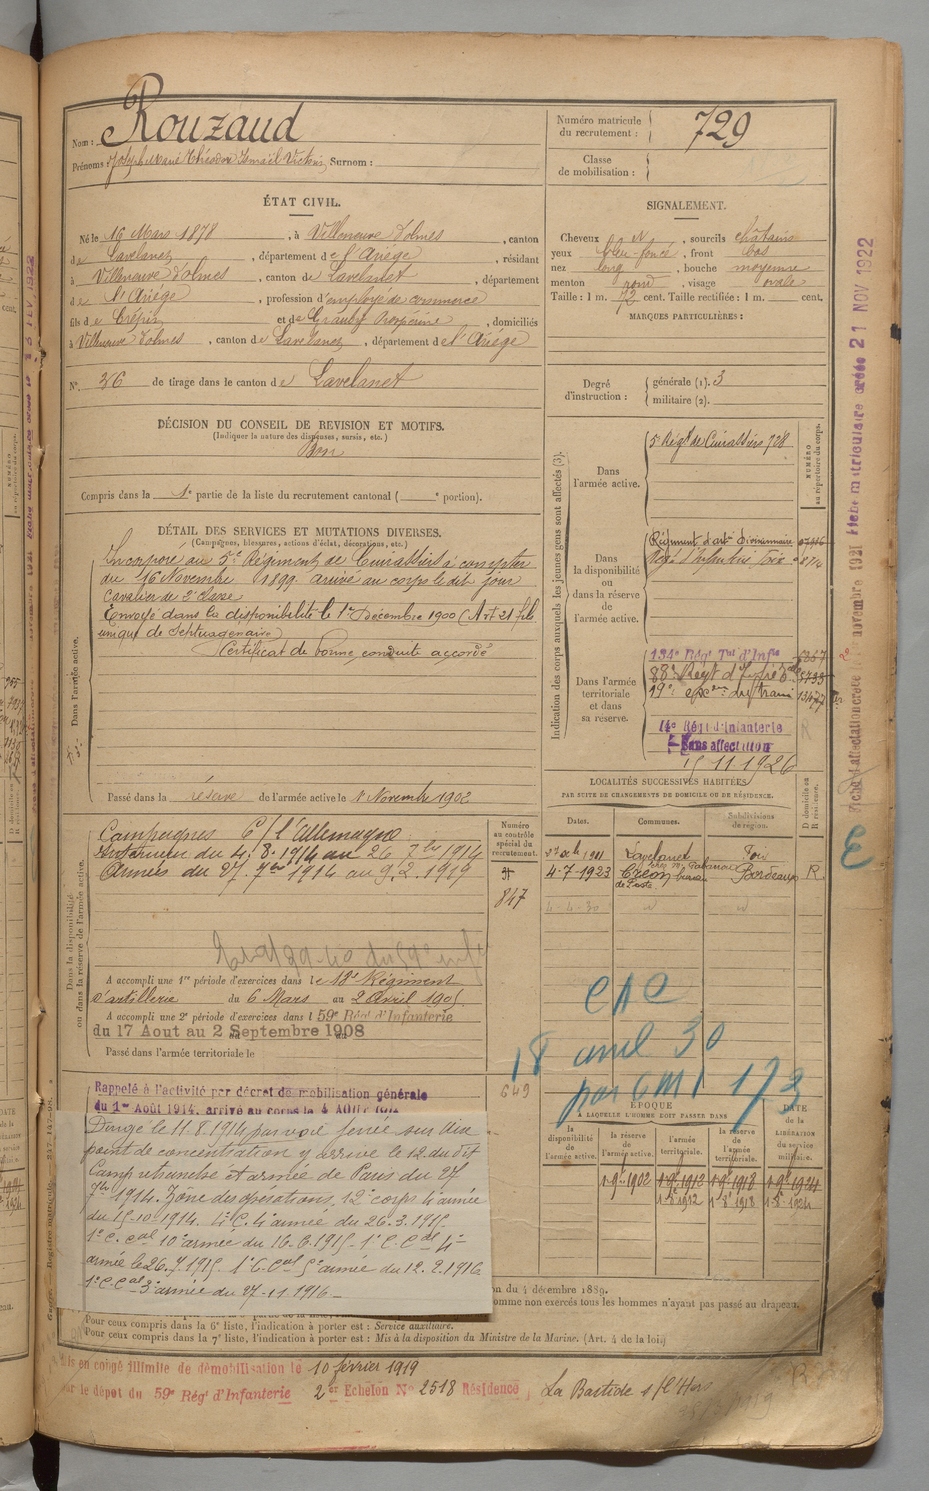 Nom : Rouzaud
Prénoms : Joseph Marie Théodore Ismaël Victorin Surnom :
Numéro matricule du recrutement : 729
Classe de mobilisation :
ÉTAT CIVIL.
Né le 16 Mars 1878, à Villeneuve d'olmes, canton
de Lavelanet, département de l'Ariège, résidant
à Villeneuve d'olmes, canton de Lavelanet, département
de l'Ariège, profession d'employé de commerce
fils de Crépin et de Prospérine, domiciliés
à Villeneuve d'olmes, canton de Lavelanet, département de l'Ariège
N° 36 de tirage dans le canton de Lavelanet
DÉCISION DU CONSEIL DE REVISION ET MOTIFS.
(Indiquer la nature des dispenses, sursis, etc.)
Bon
Compris dans la 1e partie de la liste du recrutement cantonal ( e portion).
DÉTAIL DES SERVICES ET MUTATIONS DIVERSES.
(Campagnes, blessures, actions d'éclat, décorations, etc.)
Incorporé au 5e Régiment de Cuirassiers à compter
du 16 Novembre 1899 arrivé au corps le dit jour
Cavalier de 2e classe
Envoyé dans la disponibilité le 1er Décembre 1900 (Art 21 fils
unique de Septuagénaire)
Certificat de bonne conduite accordé
Dans l'armée active.
Passé dans la réserve de l'armée active le 1 Novembre 1902
Campagnes C/ l'Allemagne
Intérieur du 4.8.1914 au 26 7bre 1914
Armées du 27. 7bre 1914 au 9.2.1919
Dans la disponibilité ou dans la réserve de l'armée active.
A accompli une 1re période d'exercices dans le 18e Régiment
d'artillerie du 6 Mars au 2 Avril 1905.
A accompli une 2e période d'exercices dans l 59e Rég' d'Infanterie
du 17 Aout au 2 Septembre 1908
Passé dans l'armée territoriale le
Rappelé à l'activité par décret de mobilisation générale
du 1er Août 1914. arrivé au corps le 4 AOUT 1914
Dirigé le 11.8.1914 par voie ferrée sur Aix
point de concentration y arrivé le 12 du dit
Camp retranché et armée de Paris du 27
7bre 1914. Zône des opérations 12e corps 4e armée
du 15-10-1914. 4e armée du 26.3.1915
10e armée du 16.6.1915
armée le 26.7.1915. 5e armée du 12.2.1916
3e armée du 27-11-1916
on du 4 décembre 1889.
omme non exercés tous les hommes n'ayant pas passé au drapeau.
Pour ceux compris dans la 6e liste, l'indication à porter est : Service auxiliaire.
Pour ceux compris dans la 7e liste, l'indication à porter est : Mis à la disposition du Ministre de la Marine. (Art. 4 de la loi)
is en congé illimité de démobilisation le 10 février 1919
ar le dépot du 59e Rég' d'Infanterie 2e Echelon N° 2518 Résidence, La Bastide s/l'Hers
SIGNALEMENT.
Cheveux et, sourcils châtains
yeux bleu foncé, front bas
nez long, bouche moyenne
menton rond, visage ovale
Taille : 1 m. 72 cent. Taille rectifiée : 1 m. cent.
MARQUES PARTICULIÈRES :
Degré d'instruction : générale (1). 3
militaire (2).
Indication des corps auxquels les jeunes gens sont affectés (3).
NUMÉRO au répertoire du corps.
Dans l'armée active. 5e Régt de Cuirassiers 728
Dans la disponibilité ou dans la réserve de l'armée active.
Régiment d'artie Divisionnaire
Régt d'Infanterie Foix
Dans l'armée territoriale et dans sa réserve.
134e Rég' Tal d'Infie 5867
88e Régt d'Infie
19e du train
14e Rég' d'Infanterie
Sans affectation
15 11 1926
LOCALITÉS SUCCESSIVES HABITÉES
PAR SUITE DE CHANGEMENTS DE DOMICILE OU DE RÉSIDENCE.
Numéro au contrôle spécial du recrutement.
Dates. Communes. Subdivisions de région. D domicile ou R résidence.
847
1911 Lavelanet Foix
4-7-1923 Créon Bordeaux R.
4-4-30
649
CAC
18 avril 30
par GMP 173
ÉPOQUE
A LAQUELLE L'HOMME DOIT PASSER DANS
DATE de la LIBÉRATION du service militaire.
la disponibilité de l'armée active. la réserve de l'armée active. l'armée territoriale. la réserve de l'armée territoriale.
1-9bre 1902 1-9bre 1912 1-9bre 1918 1-9bre 1924
1-8bre 1912 1-8bre 1918 1-8bre 1924
21 NOV 1922